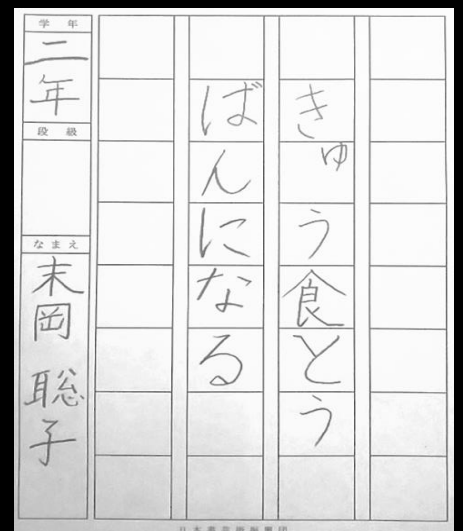 きゅう食とう
ばんになる
学年
二年
段級
なまえ
末岡 聡子